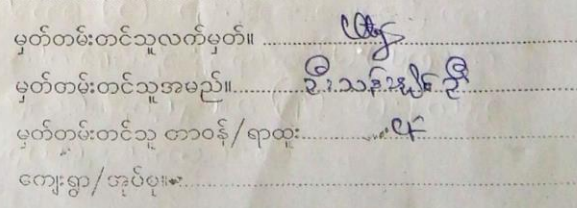 မှတ်တမ်းတင်သူလက်မှတ်။
မှတ်တမ်းတင်သူအမည်။ ဦးသန်းချိုင်ဦး
မှတ်တမ်းတင်သူ တာဝန်/ရာထူး
ကျေးရွာ/အုပ်စု။